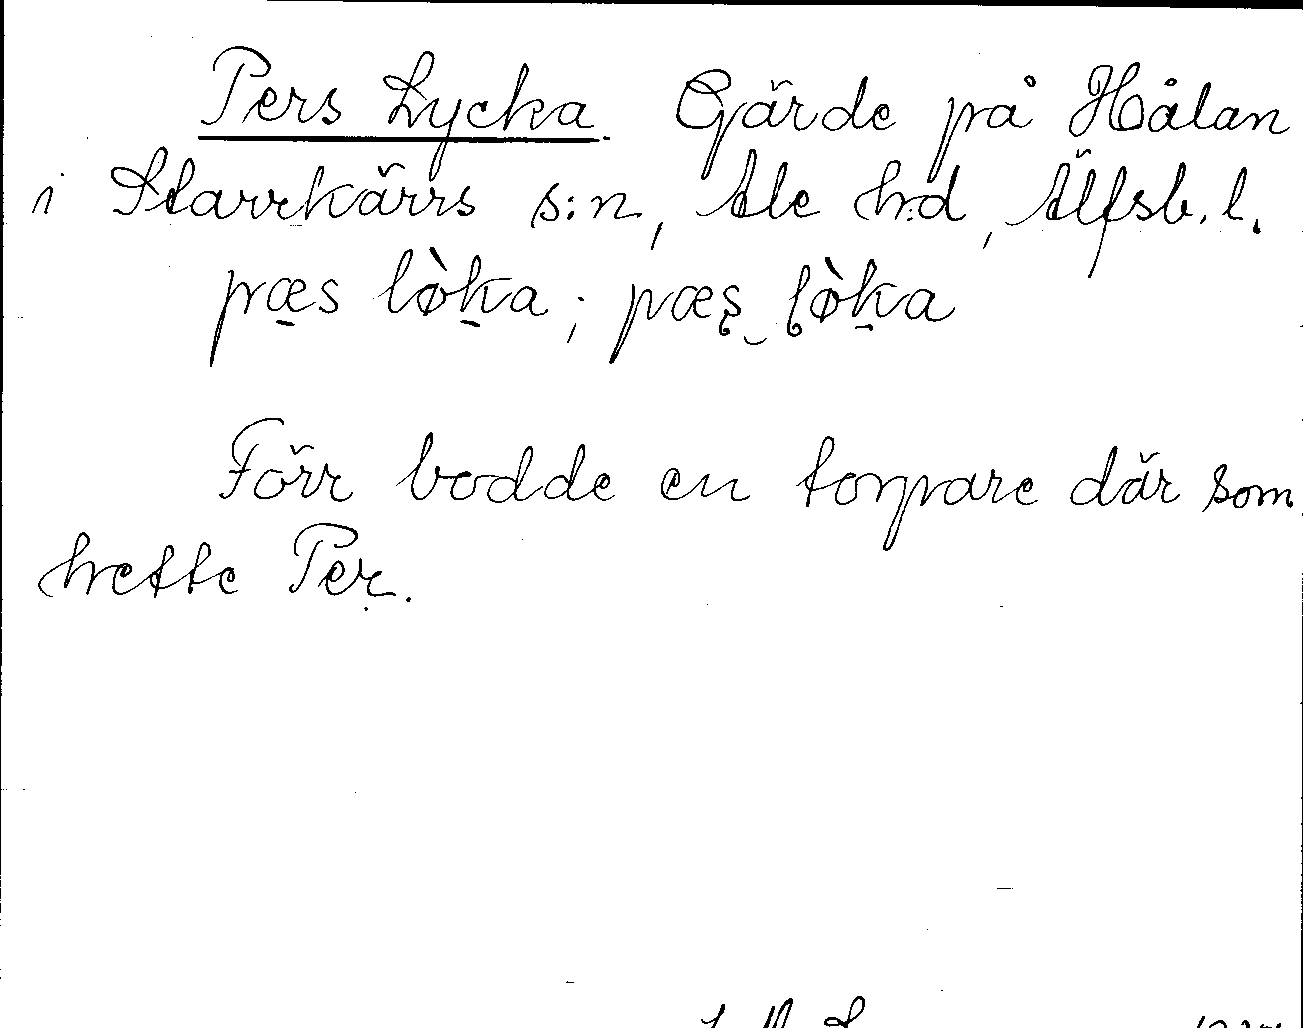 Pers Lycka. Gärde på Hålan
i Starrkärrs s:n, Ale h:d, Älfsb. l.
pæ̱s lø̀ḵa; pæʂ‿ɭø̀ḵa
Förr bodde en torpare där som
hette Per.